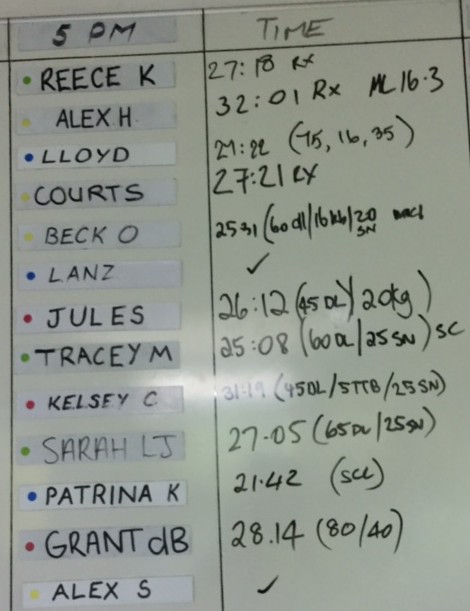 5 PM TIME
REECE K 27:18 RX
ALEX H 32:01 RX 16.3
LLOYD (75, 16, 35)
COURTS 27:21 RX
BECK O 25 31 (60dl/16kb/20 SN
LANZ ✓
JULES 26:12 (45 DL) 20kg)
TRACEY M 25:08 (60DL/25SN) SC
KELSEY C 31:19 (45DL/5TTB/25SN)
SARAH LJ 27.05 (65DL/25SN)
PATRINA K 21.42 (SCL)
GRANT dB 28.14 (80/40)
ALEX S ✓